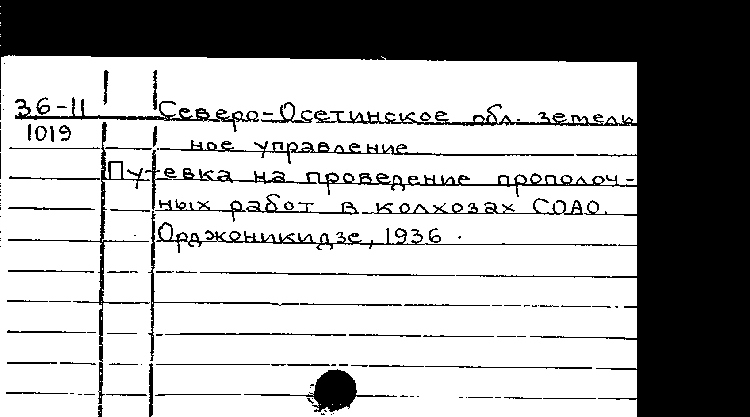 36-11 Северо-Осетинское обл. земель
1019 ное управление
Путевка на проведение прополоч-
ных работ в колхозах СОАО.
Орджоникидзе, 1936.